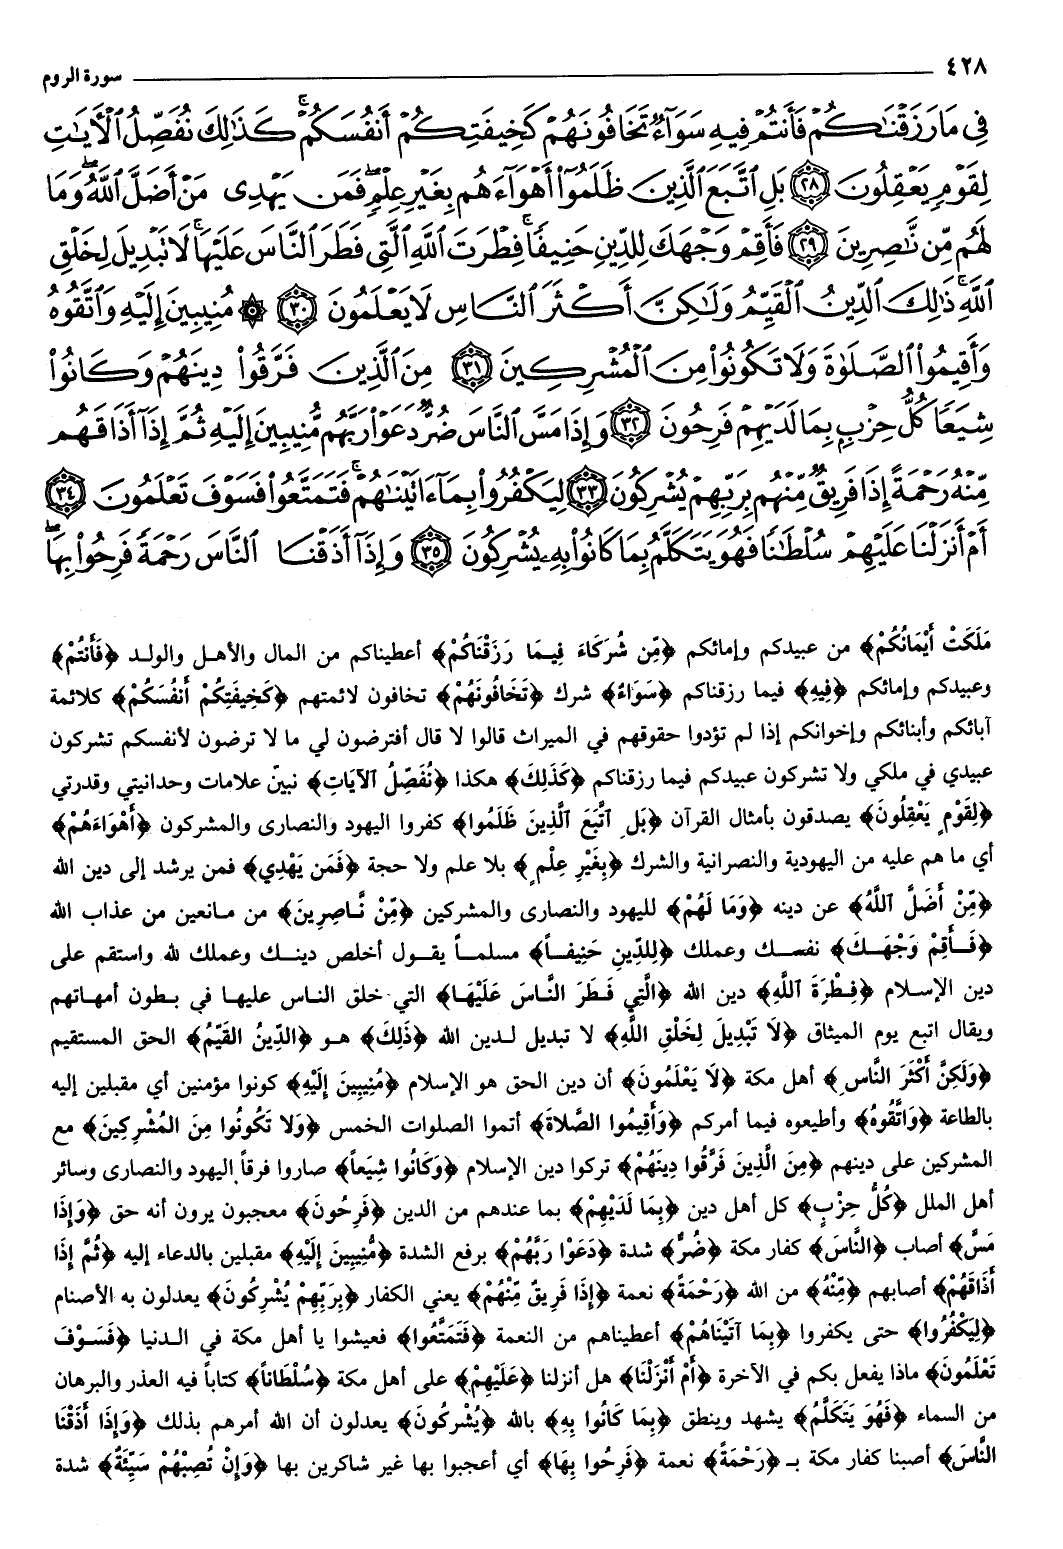 ٤٢٨ سورة الروم
فِى مَا رَزَقْنَٰكُمْ فَأَنتُمْ فِيهِ سَوَآءٌ تَخَافُونَهُمْ كَخِيفَتِكُمْ أَنفُسَكُمْ ۚ كَذَٰلِكَ نُفَصِّلُ ٱلْءَايَٰتِ
لِقَوْمٍ يَعْقِلُونَ ٢٨ بَلِ ٱتَّبَعَ ٱلَّذِينَ ظَلَمُوٓا۟ أَهْوَآءَهُم بِغَيْرِ عِلْمٍ ۖ فَمَن يَهْدِى مَنْ أَضَلَّ ٱللَّهُ ۖ وَمَا
لَهُم مِّن نَّٰصِرِينَ ٢٩ فَأَقِمْ وَجْهَكَ لِلدِّينِ حَنِيفًا ۚ فِطْرَتَ ٱللَّهِ ٱلَّتِى فَطَرَ ٱلنَّاسَ عَلَيْهَا ۚ لَا تَبْدِيلَ لِخَلْقِ
ٱللَّهِ ۚ ذَٰلِكَ ٱلدِّينُ ٱلْقَيِّمُ وَلَٰكِنَّ أَكْثَرَ ٱلنَّاسِ لَا يَعْلَمُونَ ٣٠ ۞ مُنِيبِينَ إِلَيْهِ وَٱتَّقُوهُ
وَأَقِيمُوا۟ ٱلصَّلَوٰةَ وَلَا تَكُونُوا۟ مِنَ ٱلْمُشْرِكِينَ ٣١ مِنَ ٱلَّذِينَ فَرَّقُوا۟ دِينَهُمْ وَكَانُوا۟
شِيَعًا كُلُّ حِزْبٍۭ بِمَا لَدَيْهِمْ فَرِحُونَ ٣٢ وَإِذَا مَسَّ ٱلنَّاسَ ضُرٌّ دَعَوْا۟ رَبَّهُم مُّنِيبِينَ إِلَيْهِ ثُمَّ إِذَآ أَذَاقَهُم
مِّنْهُ رَحْمَةً إِذَا فَرِيقٌ مِّنْهُم بِرَبِّهِمْ يُشْرِكُونَ ٣٣ لِيَكْفُرُوا۟ بِمَآ ءَاتَيْنَٰهُمْ ۚ فَتَمَتَّعُوا۟ فَسَوْفَ تَعْلَمُونَ ٣٤
أَمْ أَنزَلْنَا عَلَيْهِمْ سُلْطَٰنًا فَهُوَ يَتَكَلَّمُ بِمَا كَانُوا۟ بِهِۦ يُشْرِكُونَ ٣٥ وَإِذَآ أَذَقْنَا ٱلنَّاسَ رَحْمَةً فَرِحُوا۟ بِهَا ۖ
مَلَكَتْ أَيْمَانُكُمْ﴾ من عبيدكم وإمائكم ﴿مِّن شُرَكَاءَ فِيمَا رَزَقْنَاكُمْ﴾ أعطيناكم من المال والأهل والولد ﴿فَأَنتُمْ﴾
وعبيدكم وإمائكم ﴿فِيهِ﴾ فيما رزقناكم ﴿سَوَاءٌ﴾ شرك ﴿تَخَافُونَهُمْ﴾ تخافون لائمتهم ﴿كَخِيفَتِكُمْ أَنفُسَكُمْ﴾ كلائمة
آبائكم وأبنائكم وإخوانكم إذا لم تؤدوا حقوقهم في الميراث قالوا لا قال أفترضون لي ما لا ترضون لأنفسكم تشركون
عبيدي في ملكي ولا تشركون عبيدكم فيما رزقناكم ﴿كَذَلِكَ﴾ هكذا ﴿نُفَصِّلُ الآيَاتِ﴾ نبيّن علامات وحدانيتي وقدرتي
﴿لِقَوْمٍ يَعْقِلُونَ﴾ يصدقون بأمثال القرآن ﴿بَلِ ٱتَّبَعَ ٱلَّذِينَ ظَلَمُوا﴾ كفروا اليهود والنصارى والمشركون ﴿أَهْوَاءَهُمْ﴾
أي ما هم عليه من اليهودية والنصرانية والشرك ﴿بِغَيْرِ عِلْمٍ﴾ بلا علم ولا حجة ﴿فَمَن يَهْدِي﴾ فمن يرشد إلى دين الله
﴿مَنْ أَضَلَّ ٱللَّهُ﴾ عن دينه ﴿وَمَا لَهُمْ﴾ لليهود والنصارى والمشركين ﴿مِّنْ نَّاصِرِينَ﴾ من مانعين من عذاب الله
﴿فَأَقِمْ وَجْهَكَ﴾ نفسك وعملك ﴿لِلدِّينِ حَنِيفاً﴾ مسلماً يقول أخلص دينك وعملك لله واستقم على
دين الإسلام ﴿فِطْرَةَ ٱللَّهِ﴾ دين الله ﴿الَّتِي فَطَرَ النَّاسَ عَلَيْهَا﴾ التي خلق الناس عليها في بطون أمهاتهم
ويقال اتبع يوم الميثاق ﴿لَا تَبْدِيلَ لِخَلْقِ اللَّهِ﴾ لا تبديل لدين الله ﴿ذَلِكَ﴾ هو ﴿الدِّينُ القَيِّمُ﴾ الحق المستقيم
﴿وَلَكِنَّ أَكْثَرَ النَّاسِ﴾ أهل مكة ﴿لَا يَعْلَمُونَ﴾ أن دين الحق هو الإسلام ﴿مُنِيبِينَ إِلَيْهِ﴾ كونوا مؤمنين أي مقبلين إليه
بالطاعة ﴿وَاتَّقُوهُ﴾ وأطيعوه فيما أمركم ﴿وَأَقِيمُوا الصَّلاةَ﴾ أتموا الصلوات الخمس ﴿وَلا تَكُونُوا مِنَ المُشْرِكِينَ﴾ مع
المشركين على دينهم ﴿مِنَ الَّذِينَ فَرَّقُوا دِينَهُمْ﴾ تركوا دين الإسلام ﴿وَكَانُوا شِيَعاً﴾ صاروا فرقاً اليهود والنصارى وسائر
أهل الملل ﴿كُلُّ حِزْبٍ﴾ كل أهل دين ﴿بِمَا لَدَيْهِمْ﴾ بما عندهم من الدين ﴿فَرِحُونَ﴾ معجبون يرون أنه حق ﴿وَإِذَا
مَسَّ﴾ أصاب ﴿النَّاسَ﴾ كفار مكة ﴿ضُرٌّ﴾ شدة ﴿دَعَوْا رَبَّهُمْ﴾ برفع الشدة ﴿مُّنِيبِينَ إِلَيْهِ﴾ مقبلين بالدعاء إليه ﴿ثُمَّ إِذَا
أَذَاقَهُمْ﴾ أصابهم ﴿مِّنْهُ﴾ من الله ﴿رَحْمَةً﴾ نعمة ﴿إِذَا فَرِيقٌ مِّنْهُمْ﴾ يعني الكفار ﴿بِرَبِّهِمْ يُشْرِكُونَ﴾ يعدلون به الأصنام
﴿لِيَكْفُرُوا﴾ حتى يكفروا ﴿بِمَا آتَيْنَاهُمْ﴾ أعطيناهم من النعمة ﴿فَتَمَتَّعُوا﴾ فعيشوا يا أهل مكة في الدنيا ﴿فَسَوْفَ
تَعْلَمُونَ﴾ ماذا يفعل بكم في الآخرة ﴿أَمْ أَنْزَلْنَا﴾ هل أنزلنا ﴿عَلَيْهِمْ﴾ على أهل مكة ﴿سُلْطَاناً﴾ كتاباً فيه العذر والبرهان
من السماء ﴿فَهُوَ يَتَكَلَّمُ﴾ يشهد وينطق ﴿بِمَا كَانُوا بِهِ﴾ بالله ﴿يُشْرِكُونَ﴾ يعدلون أن الله أمرهم بذلك ﴿وَإِذَا أَذَقْنَا
النَّاسَ﴾ أصبنا كفار مكة بـ ﴿رَحْمَةً﴾ نعمة ﴿فَرِحُوا بِهَا﴾ أي أعجبوا بها غير شاكرين بها ﴿وَإِنْ تُصِبْهُمْ سَيِّئَةٌ﴾ شدة